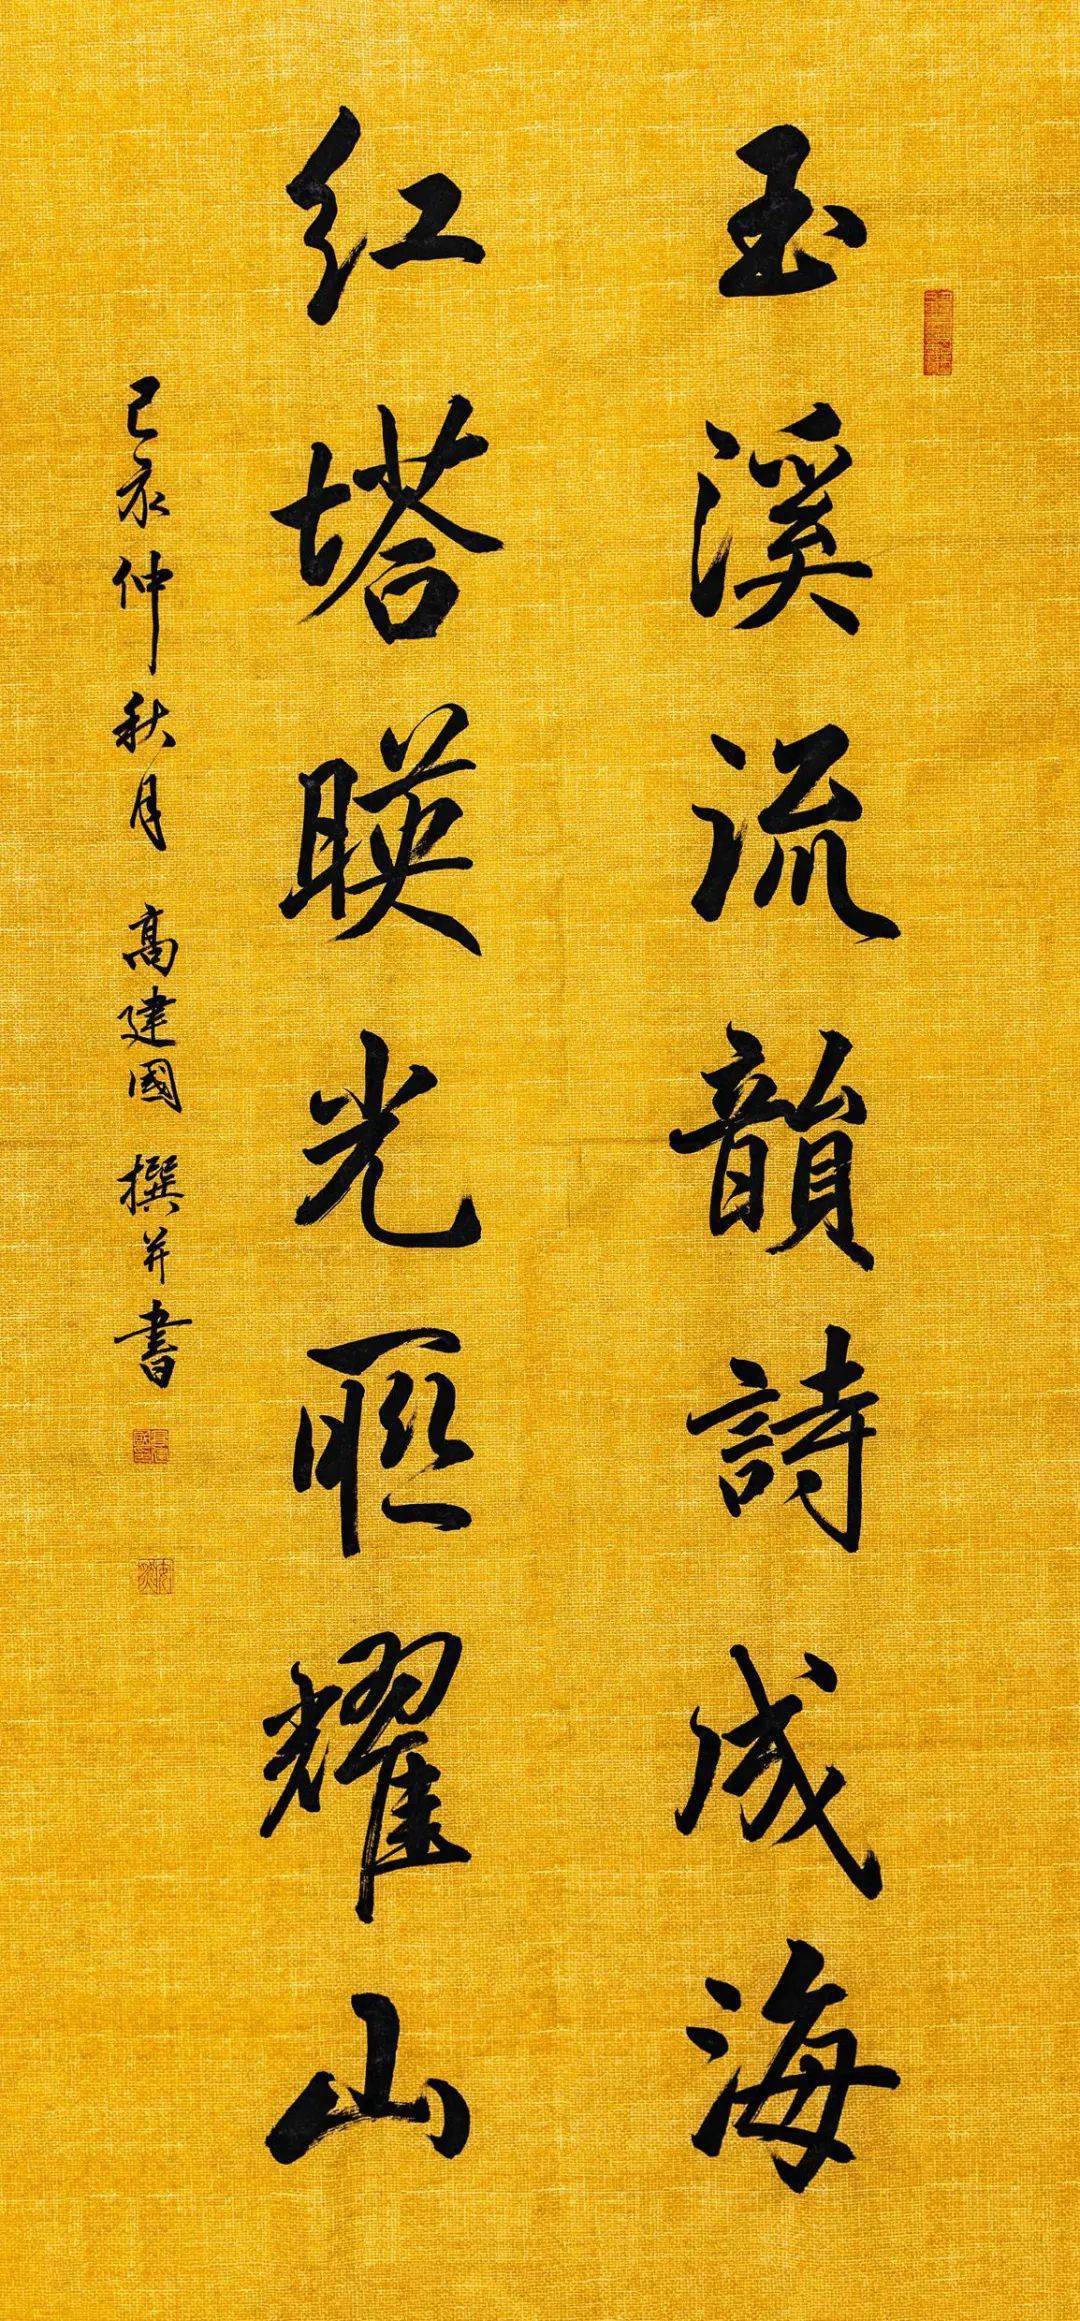 玉溪流韻詩成海
红塔暎光联耀山
己亥仲秋月 高建國 撰并書